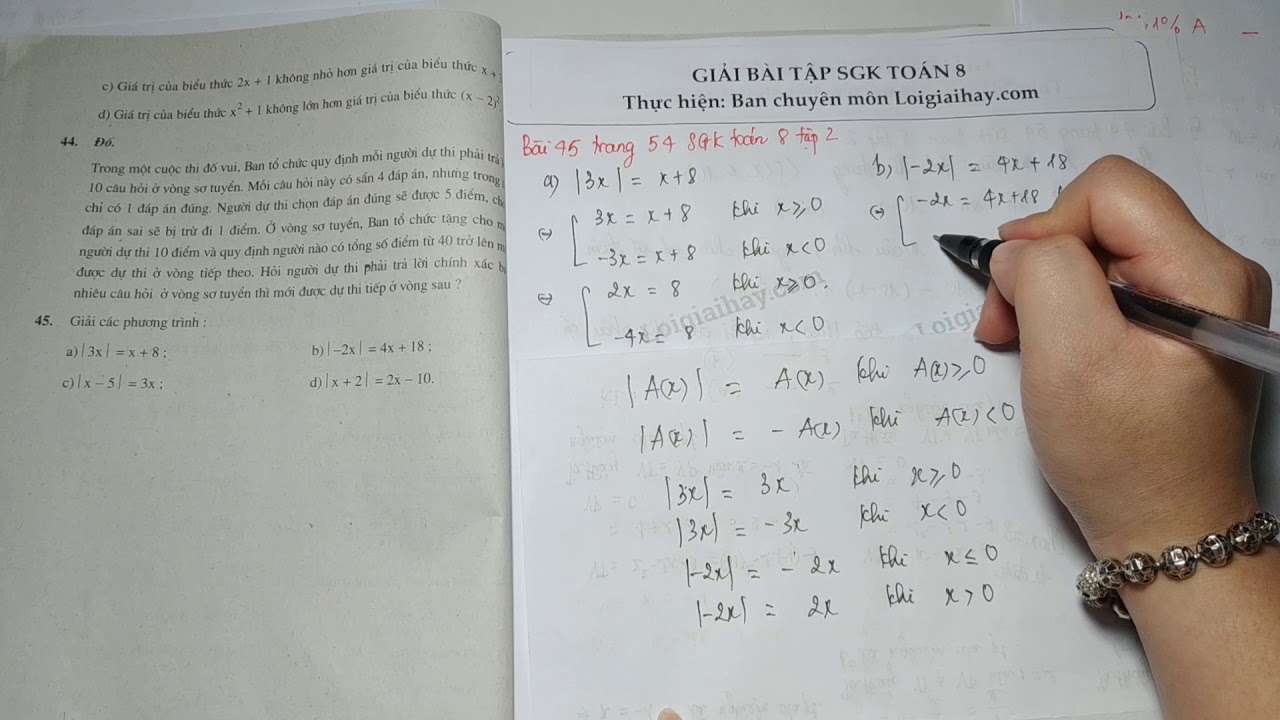 c) Giá trị của biểu thức 2x + 1 không nhỏ hơn giá trị của biểu thức x +
d) Giá trị của biểu thức x² + 1 không lớn hơn giá trị của biểu thức (x – 2)²
44. Đố.
Trong một cuộc thi đố vui, Ban tổ chức quy định mỗi người dự thi phải trả
10 câu hỏi ở vòng sơ tuyển. Mỗi câu hỏi này có sẵn 4 đáp án, nhưng trong
chỉ có 1 đáp án đúng. Người dự thi chọn đáp án đúng sẽ được 5 điểm,
đáp án sai sẽ bị trừ đi 1 điểm. Ở vòng sơ tuyển, Ban tổ chức tặng cho
người dự thi 10 điểm và quy định người nào có tổng số điểm từ 40 trở lên
được dự thi ở vòng tiếp theo. Hỏi người dự thi phải trả lời chính xác
nhiêu câu hỏi ở vòng sơ tuyển thì mới được dự thi tiếp ở vòng sau ?
45. Giải các phương trình :
a) |3x| = x + 8 ; b) |–2x| = 4x + 18 ;
c) |x – 5| = 3x ; d) |x + 2| = 2x – 10.
GIẢI BÀI TẬP SGK TOÁN 8
Thực hiện: Ban chuyên môn Loigiaihay.com
Bài 45 trang 54 SGK toán 8 tập 2
a) |3x| = x + 8
⇔ [ 3x = x + 8 khi x ⩾ 0
-3x = x + 8 khi x < 0
⇔ [ 2x = 8 khi x ⩾ 0.
-4x = 8 khi x < 0
b) |-2x| = 4x + 18
⇔ [ -2x = 4x + 18
Loigiaihay.com
|A(x)| = A(x) khi A(x) ⩾ 0
|A(x)| = - A(x) khi A(x) < 0
|3x| = 3x khi x ⩾ 0
|3x| = - 3x khi x < 0
|-2x| = - 2x khi x ≤ 0
|-2x| = 2x khi x > 0